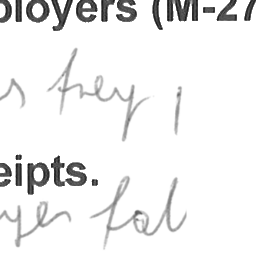 ployers (M-27
s they
eipts.
yer fal